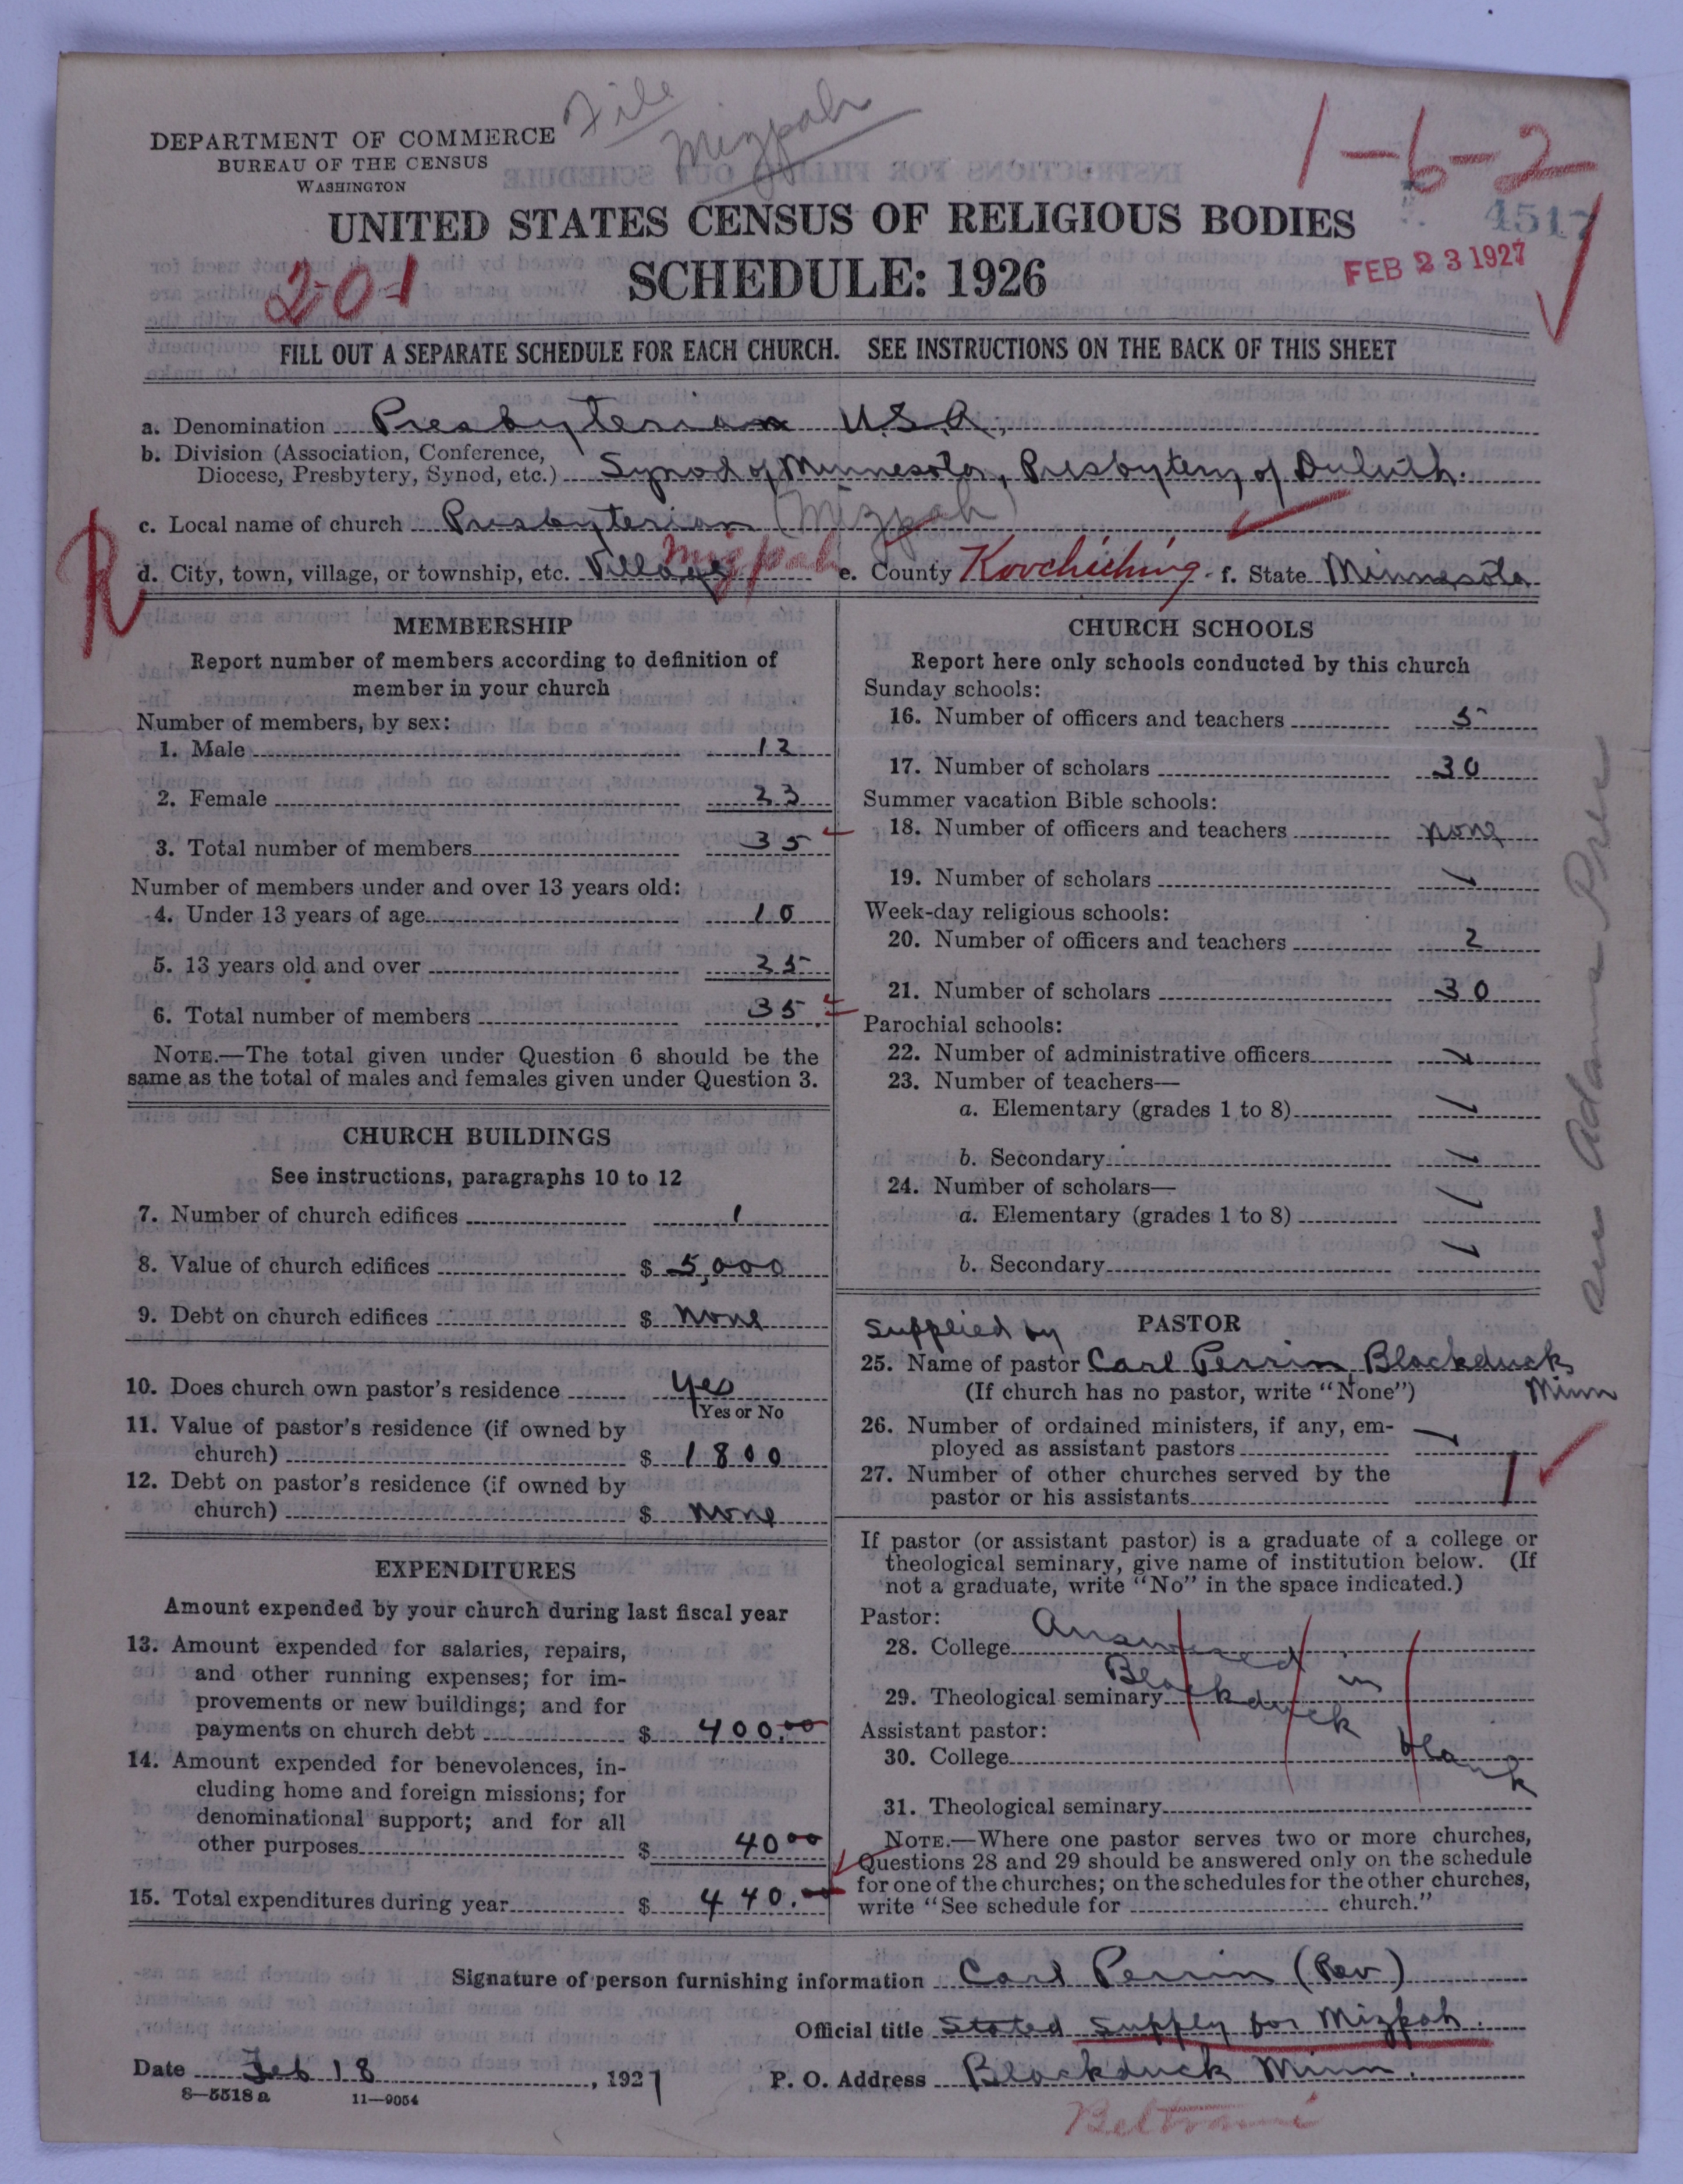 File
Mizpah
1-6-2
DEPARTMENT OF COMMERCE
BUREAU OF THE CENSUS
WASHINGTON
4517
UNITED STATES CENSUS OF RELIGIOUS BODIES
201
SCHEDULE: 1926
FEB 23 1927
FILL OUT A SEPARATE SCHEDULE FOR EACH CHURCH. SEE INSTRUCTIONS ON THE BACK OF THIS SHEET
a. Denomination Presbyterian U.S.A.
b. Division (Association, Conference,
Diocese, Presbytery, Synod, etc.) Synod of Minnesota, Presbytery of Duluth.
R
c. Local name of church Presbyterian (Mizpah)
d. City, town, village, or township, etc. Village Mizpah e. County Koochiching f. State Minnesota
MEMBERSHIP
Report number of members according to definition of
member in your church
Number of members, by sex:
1. Male 12
2. Female 23
3. Total number of members 35
Number of members under and over 13 years old:
4. Under 13 years of age 10
5. 13 years old and over 25
6. Total number of members 35
NOTE.—The total given under Question 6 should be the
same as the total of males and females given under Question 3.
CHURCH BUILDINGS
See instructions, paragraphs 10 to 12
7. Number of church edifices 1
8. Value of church edifices $ 5,000
9. Debt on church edifices $ none
10. Does church own pastor's residence yes
Yes or No
11. Value of pastor's residence (if owned by
church) $ 1800
12. Debt on pastor's residence (if owned by
church) $ none
EXPENDITURES
Amount expended by your church during last fiscal year
13. Amount expended for salaries, repairs,
and other running expenses; for im-
provements or new buildings; and for
payments on church debt $ 400.00
14. Amount expended for benevolences, in-
cluding home and foreign missions; for
denominational support; and for all
other purposes $ 40.00
15. Total expenditures during year $ 440.00
CHURCH SCHOOLS
Report here only schools conducted by this church
Sunday schools:
16. Number of officers and teachers 5
17. Number of scholars 30
Summer vacation Bible schools:
18. Number of officers and teachers none
19. Number of scholars
Week-day religious schools:
20. Number of officers and teachers 2
21. Number of scholars 30
Parochial schools:
22. Number of administrative officers
23. Number of teachers—
a. Elementary (grades 1 to 8)
b. Secondary
24. Number of scholars—
a. Elementary (grades 1 to 8)
b. Secondary
Supplied by PASTOR
25. Name of pastor Carl Perrin Blackduck
(If church has no pastor, write "None") Minn
26. Number of ordained ministers, if any, em-
ployed as assistant pastors
27. Number of other churches served by the
pastor or his assistants 1
If pastor (or assistant pastor) is a graduate of a college or
theological seminary, give name of institution below. (If
not a graduate, write "No" in the space indicated.)
Pastor:
28. College Answered in
29. Theological seminary Blackduck
Assistant pastor:
30. College blank
31. Theological seminary
NOTE.—Where one pastor serves two or more churches,
Questions 28 and 29 should be answered only on the schedule
for one of the churches; on the schedules for the other churches,
write "See schedule for church."
Signature of person furnishing information Carl Perrin (Rev)
Official title Stated Supply for Mizpah.
Date Feb 18, 1927 P. O. Address Blackduck Minn.
8—5518 a 11—9054
Beltrami